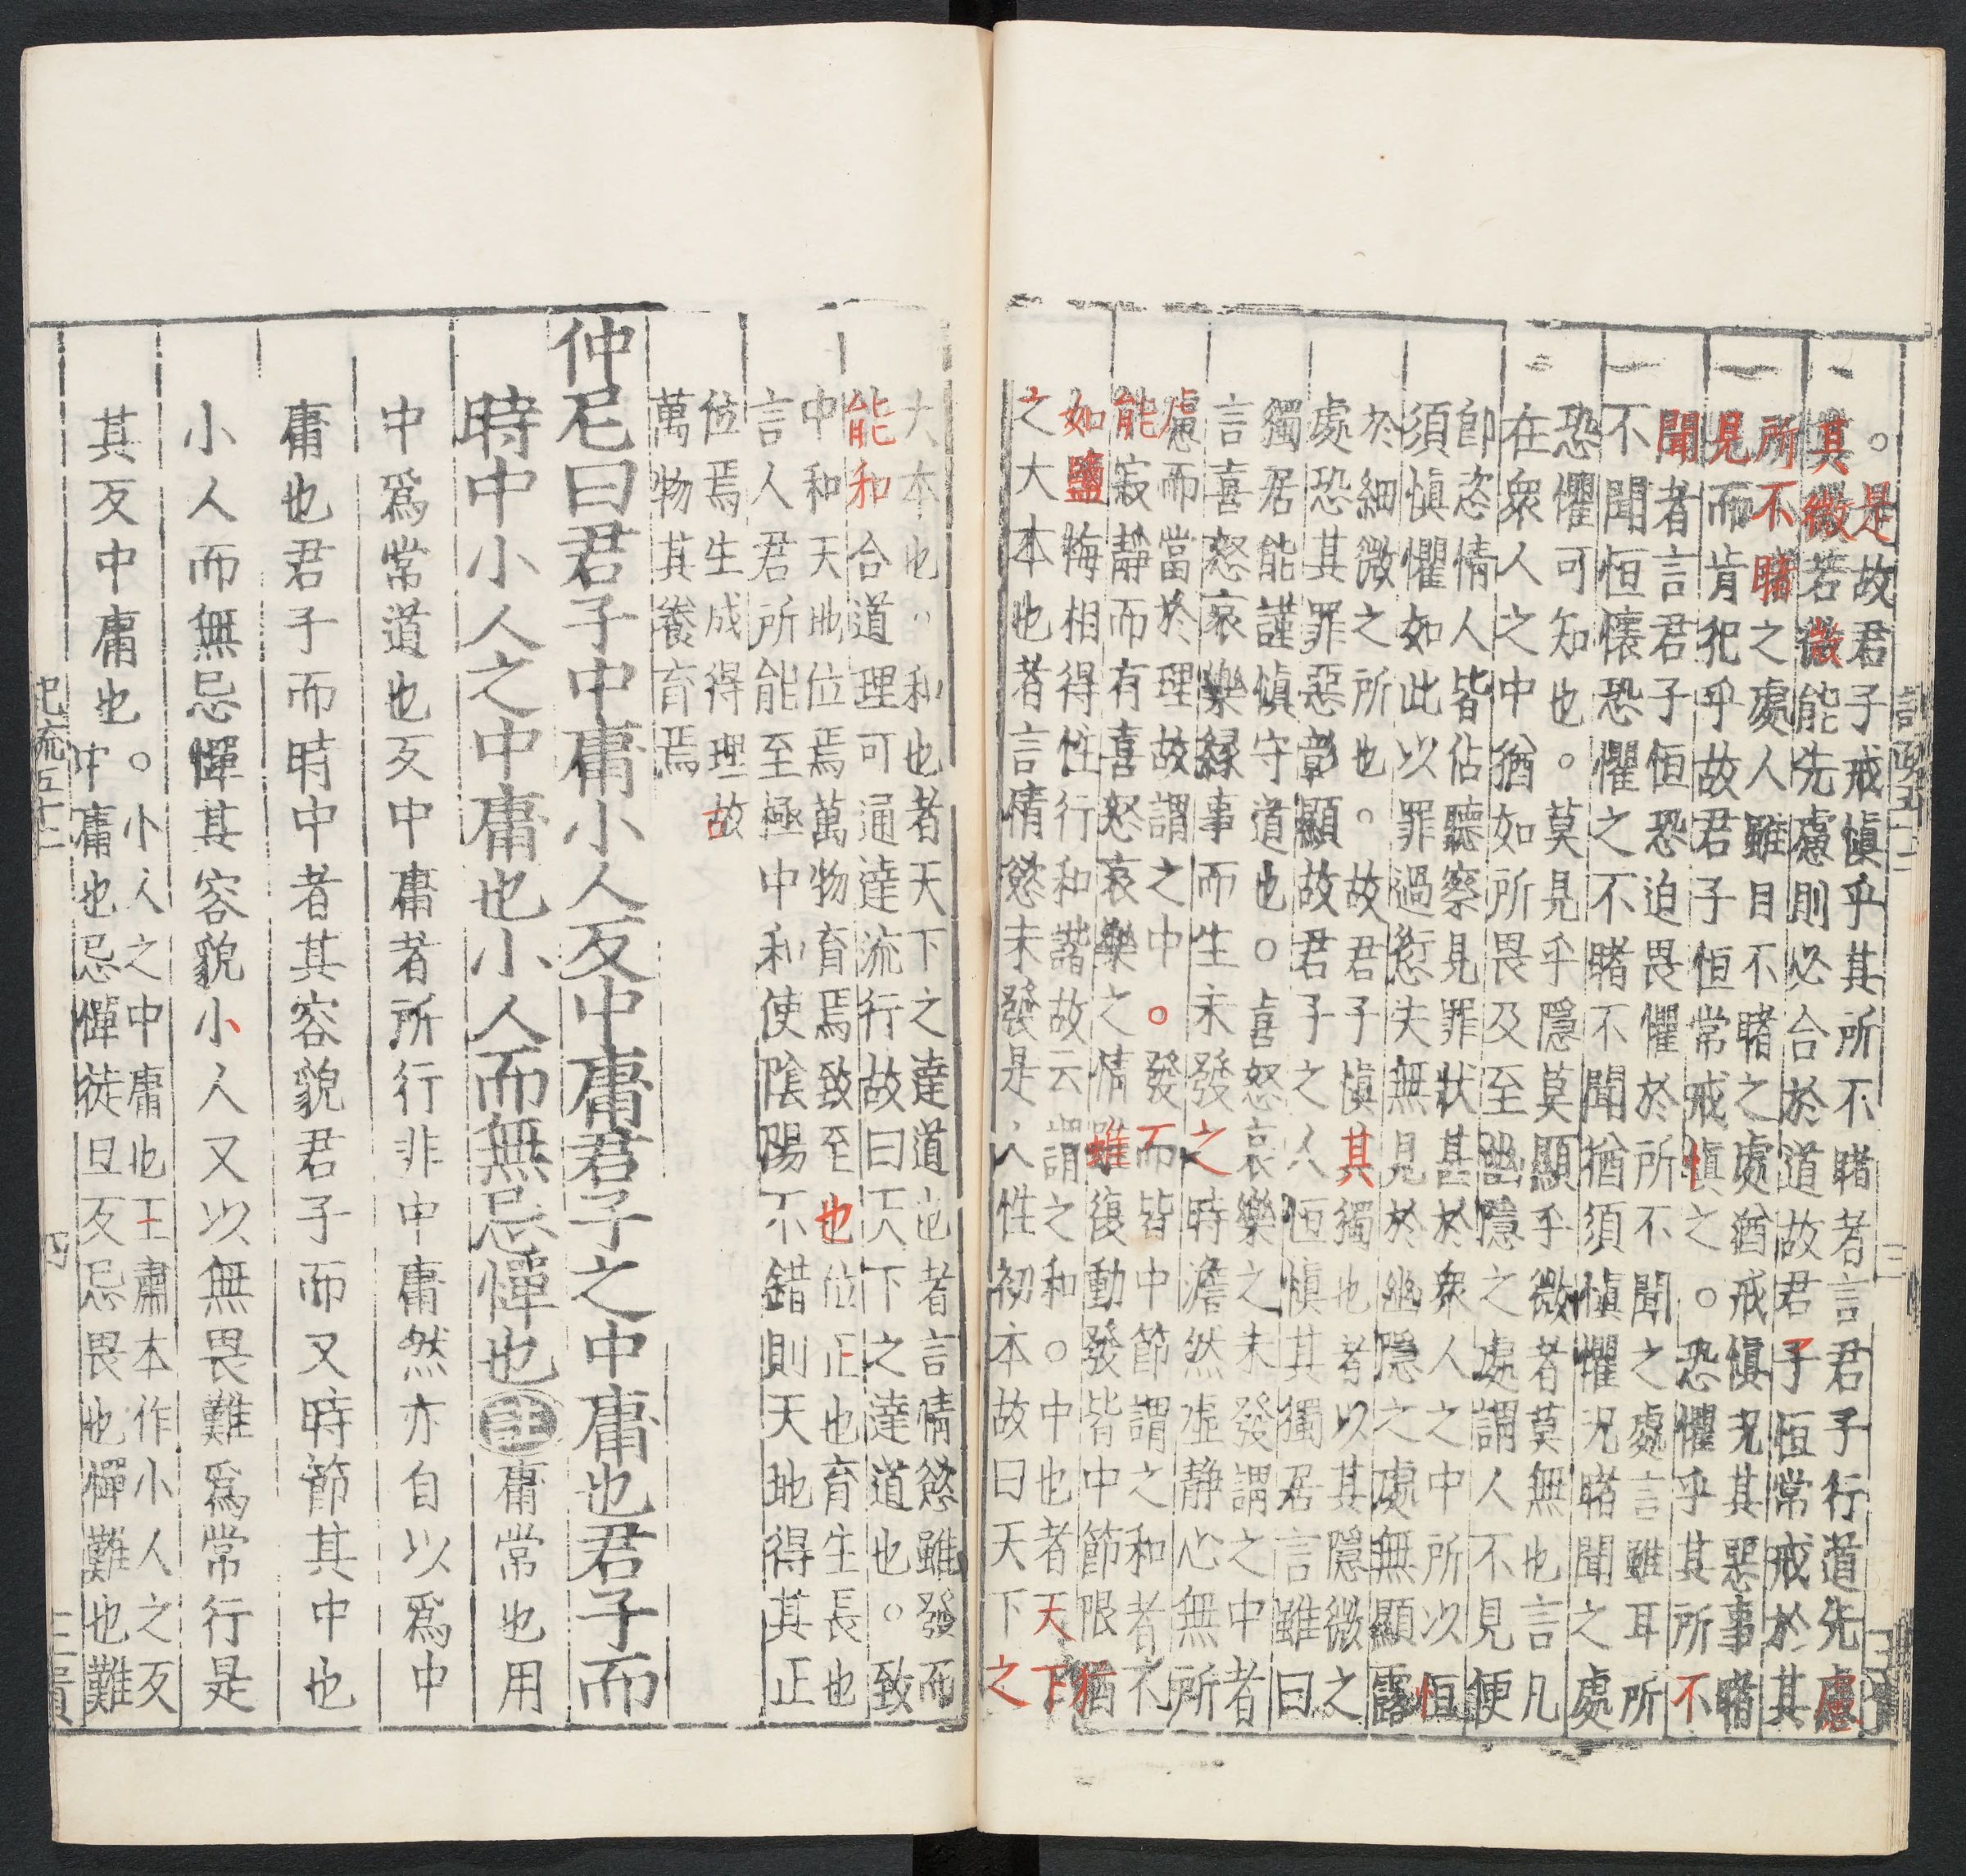 ○是故君子戒慎乎其所不睹者言君子行道先慮
其微若微能先慮則必合於道故君子恒常戒於其
所不睹之處人雖目不睹之處猶戒慎況其惡事睹
見而肯犯乎故君子恒常戒慎之○恐懼乎其所不
聞者言君子恒恐迫畏懼於所不聞之處言雖耳所
不聞恒懷恐懼之不睹不聞猶須慎懼況睹聞之處
恐懼可知也○莫見乎隱莫顯乎微者莫無也言凡
在衆人之中猶如所畏及至幽隱之處謂人不見便
即恣情人皆佔聽察見罪狀甚於衆人之中所以恒
須慎懼如此以罪過愆失無見於幽隱之處無顯露
於細微之所也○故君子慎其獨也者以其隱微之
處恐其罪惡彰顯故君子之人恒慎其獨居言雖曰
獨居能謹慎守道也○喜怒哀樂之未發謂之中者
言喜怒哀樂緣事而生未發之時澹然虛静心無所
慮而當於理故謂之中○發而皆中節謂之和者不
能寂靜而有喜怒哀樂之情雖復動發皆中節限猶
如鹽梅相得性行和諧故云謂之和○中也者天下
之大本也者言情慾未發是人性初本故曰天下之
大本也○和也者天下之達道也者言情慾雖發而
能和合道理可通達流行故曰天下之達道也○致
中和天地位焉萬物育焉致至也位正也育生長也
言人君所能至極中和使陰陽不錯則天地得其正
位焉生成得理故
萬物其養育焉
仲尼曰君子中庸小人反中庸君子之中庸也君子而
時中小人之中庸也小人而無忌憚也註庸常也用
中爲常道也反中庸者所行非中庸然亦自以爲中
庸也君子而時中者其容貌君子而又時節其中也
小人而無忌憚其容貌小人又以無畏難爲常行是
其反中庸也○小人之中庸也王肅本作小人之反
中庸也忌憚徒旦反忌畏也憚難也難
记疏五十二
四